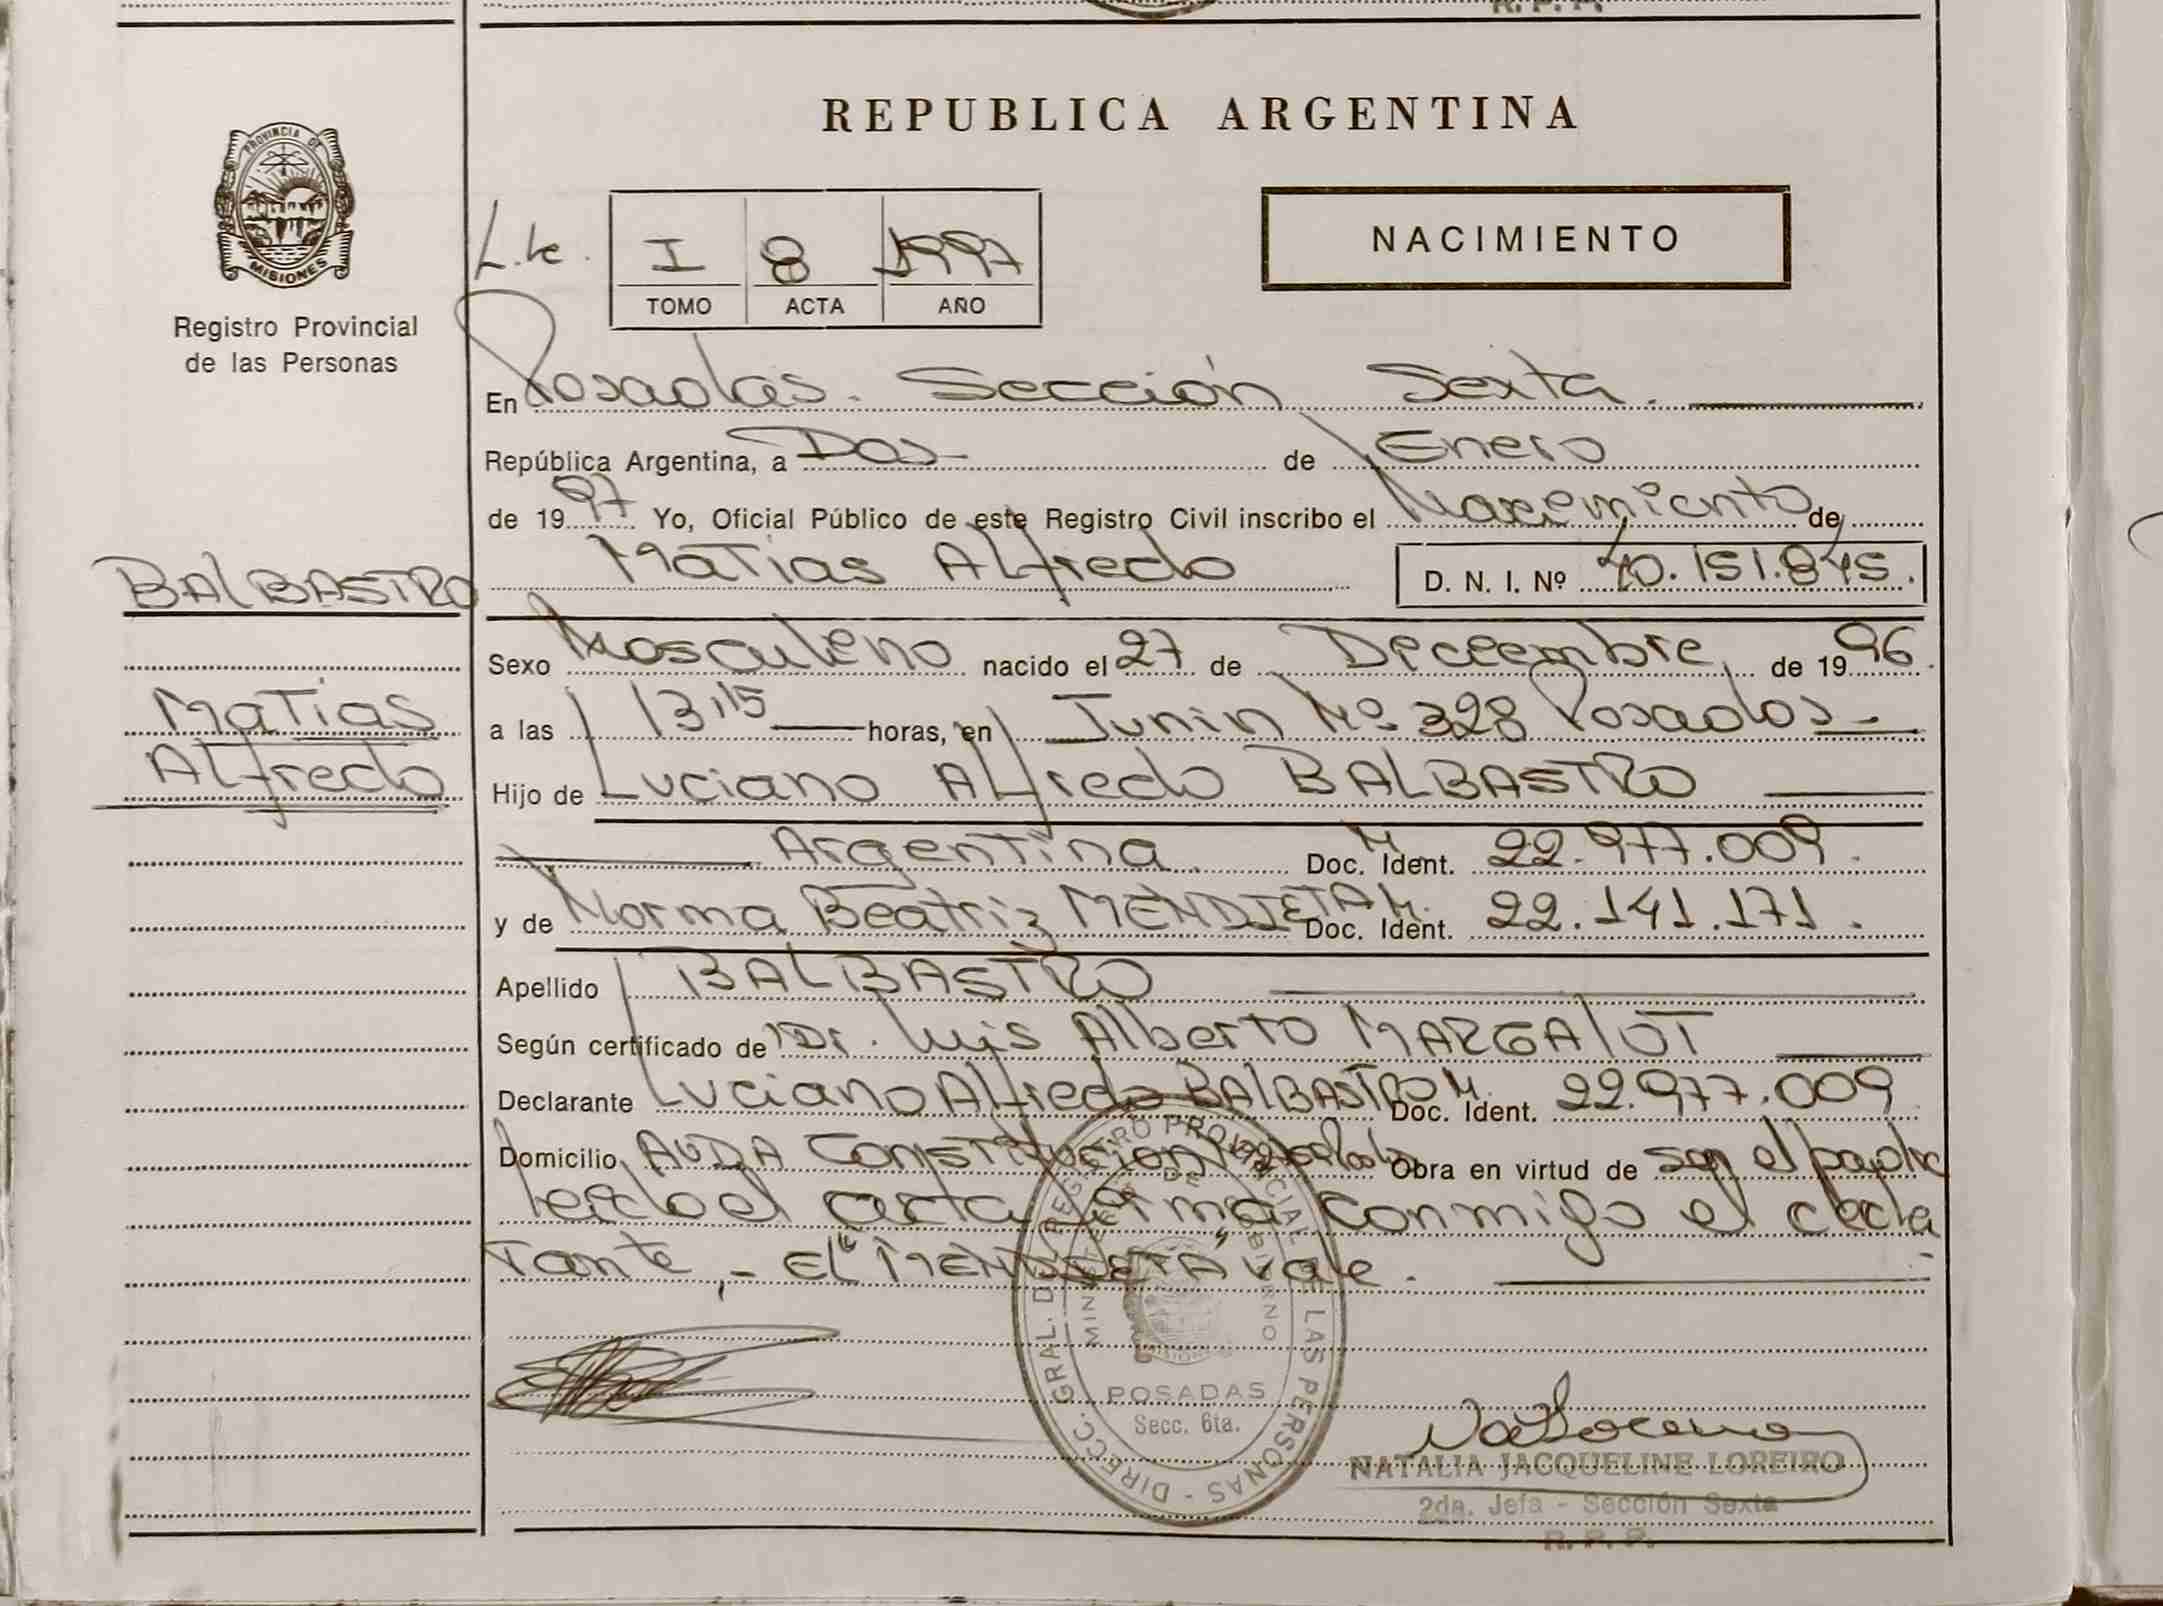 R. P. P.
REPUBLICA ARGENTINA
PROVINCIA DE
MISIONES
Registro Provincial
de las Personas
I 8 1997
TOMO ACTA AÑO
NACIMIENTO
En Posadas. Sección Sexta.
República Argentina, a Dos de Enero
de 1997 Yo, Oficial Público de este Registro Civil inscribo el Nacimiento de
BALBASTRO
Matias Alfredo D. N. I. Nº 40.151.845.
Sexo Masculino nacido el 27 de Diciembre de 1996.
Matias
a las 13,15 horas, en Junin Nº 328 Posadas
Alfredo
Hijo de Luciano Alfredo BALBASTRO
Argentina Doc. Ident. 22.977.009.
y de Norma Beatriz MENDIETA Doc. Ident. 22.141.171.
Apellido BALBASTRO
Según certificado de Dr. Luis Alberto MARGALOT
Declarante Luciano Alfredo BALBASTRO Doc. Ident. 22.977.009
Domicilio AVDA Constitucion Obra en virtud de ser el padre
leida el acta firma conmigo el decla
rante.- El "MENDIETA" vale.
DIRECC. GRAL. DEL REGISTRO PROVINCIAL DE LAS PERSONAS -
MINISTERIO DE GOBIERNO
MISIONES
POSADAS
Secc. 6ta.
NATALIA JACQUELINE LOREIRO
2da. Jefa - Sección Sexta
R. P. P.